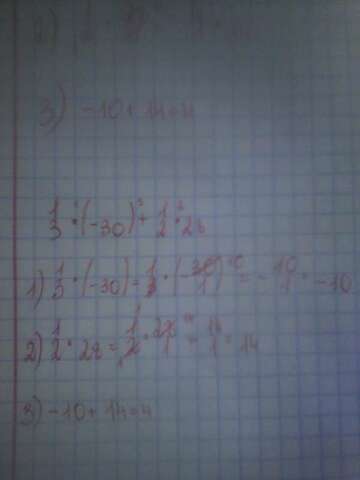 3) -10 + 14 = 4
1/3 · (-30) + 1/2 · 28
1) 1/3 · (-30) = 1/3 · (-30/1) = -10/1 = -10
2) 1/2 · 28 = 1/2 · 28/1 = 14/1 = 14
3) -10 + 14 = 4